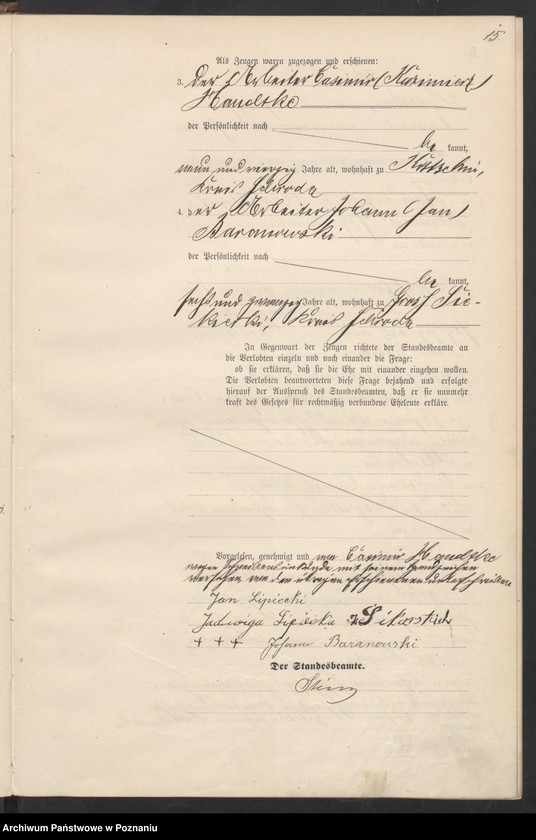 15.
Als Zeugen waren zugezogen und erschienen:
3. der Arbeiter Casimir (Kazimierz)
Handtke
der Persönlichkeit nach
be kannt,
neun und vierzig Jahre alt, wohnhaft zu
Kreis Schroda
4. der Arbeiter Johann (Jan)
Baranowski
der Persönlichkeit nach
be kannt,
sechs und zwanzig Jahre alt, wohnhaft zu Gross Sie-
kierki, Kreis Schroda
In Gegenwart der Zeugen richtete der Standesbeamte an
die Verlobten einzeln und nach einander die Frage:
ob sie erklären, daß sie die Ehe mit einander eingehen wollen.
Die Verlobten beantworteten diese Frage bejahend und erfolgte
hierauf der Ausspruch des Standesbeamten, daß er sie nunmehr
kraft des Gesetzes für rechtmäßig verbundene Eheleute erkläre.
Vorgelesen, genehmigt und von Casimir Handtke
wegen Schreibensunkunde mit seinem Handzeichen
versehen von den übrigen Erschienenen unterschrieben
Jan Lipiecki
Jadwiga Lipiecka z Sikorskich
+ + + Johann Baranowski
Der Standesbeamte.
Archiwum Państwowe w Poznaniu